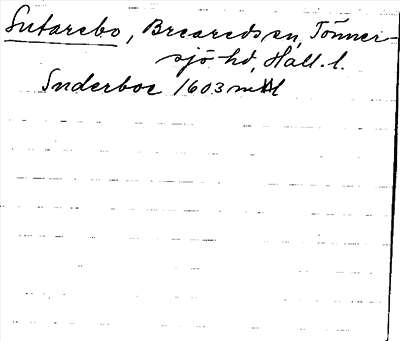 Sutarebo, Breareds sn, Tönner-
sjö hd, Hall. l.
Suderboe 1603